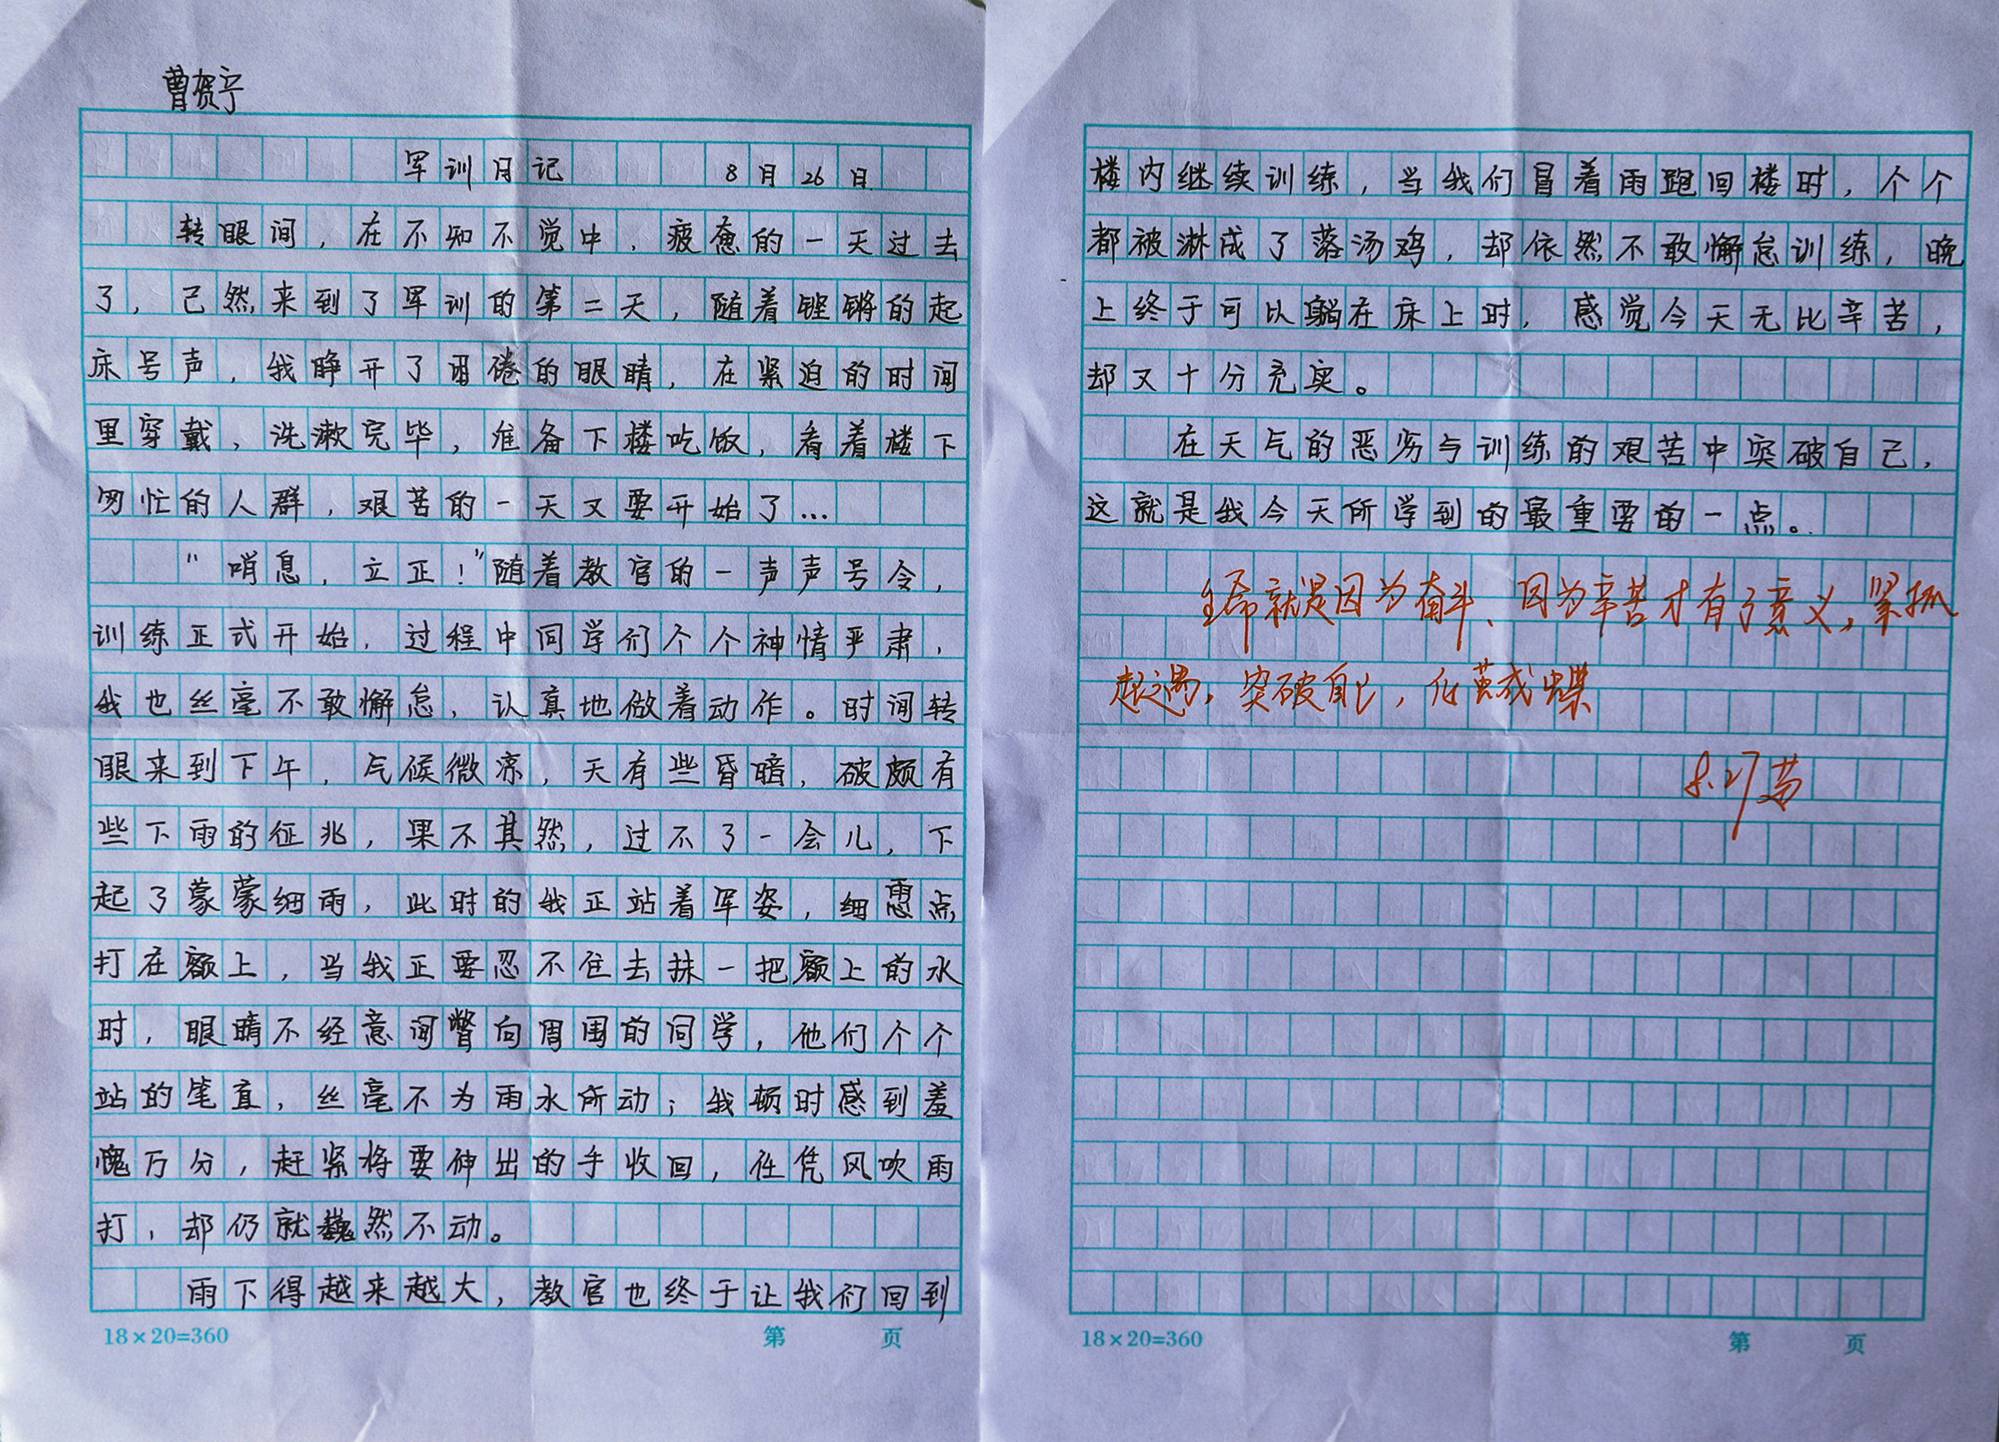 曹贺宁
军训日记 8月26日
转眼间，在不知不觉中，疲惫的一天过去
了，已然来到了军训的第二天，随着铿锵的起
床号声，我睁开了困倦的眼睛，在紧迫的时间
里穿戴，洗漱完毕，准备下楼吃饭，看着楼下
匆忙的人群，艰苦的一天又要开始了...
“哨息，立正！”随着教官的一声声号令，
训练正式开始，过程中同学们个个神情严肃，
我也丝毫不敢懈怠，认真地做着动作。时间转
眼来到下午，气候微凉，天有些昏暗，破颇有
些下雨的征兆，果不其然，过不了一会儿，下
起了蒙蒙细雨，此时的我正站着军姿，细雨点
打在额上，当我正要忍不住去抹一把额上的水
时，眼睛不经意间瞥向周围的同学，他们个个
站的笔直，丝毫不为雨水所动；我顿时感到羞
愧万分，赶紧将要伸出的手收回，任凭风吹雨
打，却仍就巍然不动。
雨下得越来越大，教官也终于让我们回到
18×20=360 第 页
楼内继续训练，当我们冒着雨跑回楼时，个个
都被淋成了落汤鸡，却依然不敢懈怠训练，晚
上终于可以躺在床上时，感觉今天无比辛苦，
却又十分充实。
在天气的恶劣与训练的艰苦中突破自己，
这就是我今天所学到的最重要的一点。
生命就是因为奋斗、因为辛苦才有了意义，紧抓
起遇，突破自己，化茧成蝶
8.27
18×20=360 第 页